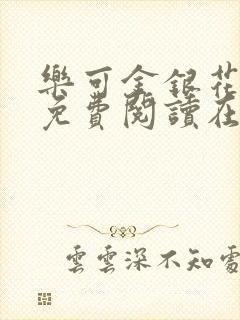 樂可金銀花
免費閱讀在
雲雲深不知處